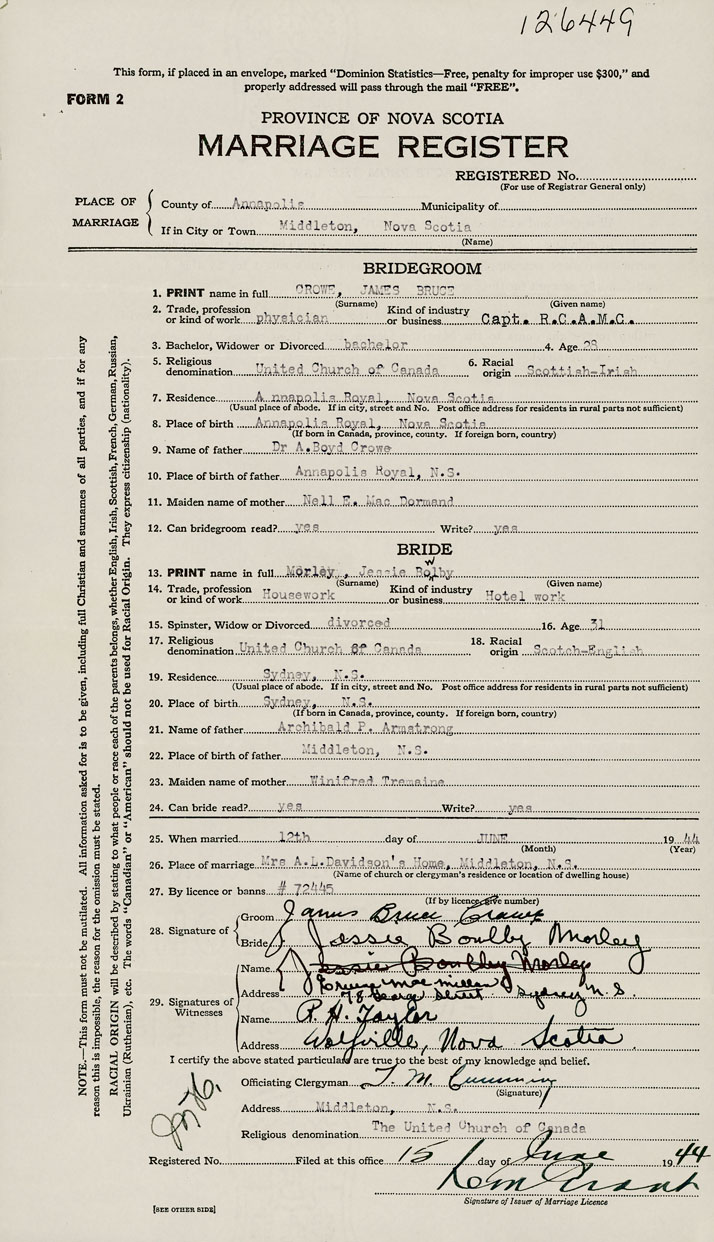 126449
This form, if placed in an envelope, marked "Dominion Statistics—Free, penalty for improper use $300," and
properly addressed will pass through the mail "FREE".
FORM 2
PROVINCE OF NOVA SCOTIA
MARRIAGE REGISTER
REGISTERED No.
(For use of Registrar General only)
PLACE OF MARRIAGE
County of Annapolis Municipality of
If in City or Town Middleton, Nova Scotia
(Name)
BRIDEGROOM
1. PRINT name in full CROWE, JAMES BRUCE
(Surname) (Given name)
2. Trade, profession or kind of work physician Kind of industry or business Capt. R.C.A.M.C.
3. Bachelor, Widower or Divorced bachelor 4. Age 28
5. Religious denomination United Church of Canada 6. Racial origin Scottish-Irish
7. Residence Annapolis Royal, Nova Scotia
(Usual place of abode. If in city, street and No. Post office address for residents in rural parts not sufficient)
8. Place of birth Annapolis Royal, Nova Scotia
(If born in Canada, province, county. If foreign born, country)
9. Name of father Dr A.Boyd Crowe
10. Place of birth of father Annapolis Royal, N.S.
11. Maiden name of mother Nell E. Mac Dormand
12. Can bridegroom read? yes Write? yes
BRIDE
13. PRINT name in full Morley, Jessie Bolby
w
(Surname) (Given name)
14. Trade, profession or kind of work Housework Kind of industry or business Hotel work
15. Spinster, Widow or Divorced divorced 16. Age 31
17. Religious denomination United Church of Canada 18. Racial origin Scotch-English
19. Residence Sydney, N.S.
(Usual place of abode. If in city, street and No. Post office address for residents in rural parts not sufficient)
20. Place of birth Sydney, N.S.
(If born in Canada, province, county. If foreign born, country)
21. Name of father Archibald P. Armstrong
22. Place of birth of father Middleton, N.S.
23. Maiden name of mother Winifred Tremaine
24. Can bride read? yes Write? yes
25. When married 12th day of JUNE 1944
(Month) (Year)
26. Place of marriage Mrs A.L.Davidson's Home, Middleton, N.S.
(Name of church or clergyman's residence or location of dwelling house)
27. By licence or banns # 72445
(If by licence, give number)
28. Signature of
Groom James Bruce Crowe
Bride Jessie Boulby Morley
29. Signatures of Witnesses
Name Jessie Boulby Morley
Mac millan
Address 78 George Street Sydney N.S.
Name R. H. Taylor
Address Wolfville, Nova Scotia
I certify the above stated particulars are true to the best of my knowledge and belief.
Officiating Clergyman T. M. Cumming
(Signature)
Address Middleton, N.S.
Religious denomination The United Church of Canada
Registered No. Filed at this office 15 day of June 1944
Signature of Issuer of Marriage Licence
[SEE OTHER SIDE]
NOTE.—This form must not be mutilated. All information asked for is to be given, including full Christian and surnames of all parties, and if for any
reason this is impossible, the reason for the omission must be stated.
RACIAL ORIGIN will be described by stating to what people or race each of the parents belongs, whether English, Irish, Scottish, French, German, Russian,
Ukrainian (Ruthenian), etc. The words "Canadian" or "American" should not be used for Racial Origin. They express citizenship (nationality).